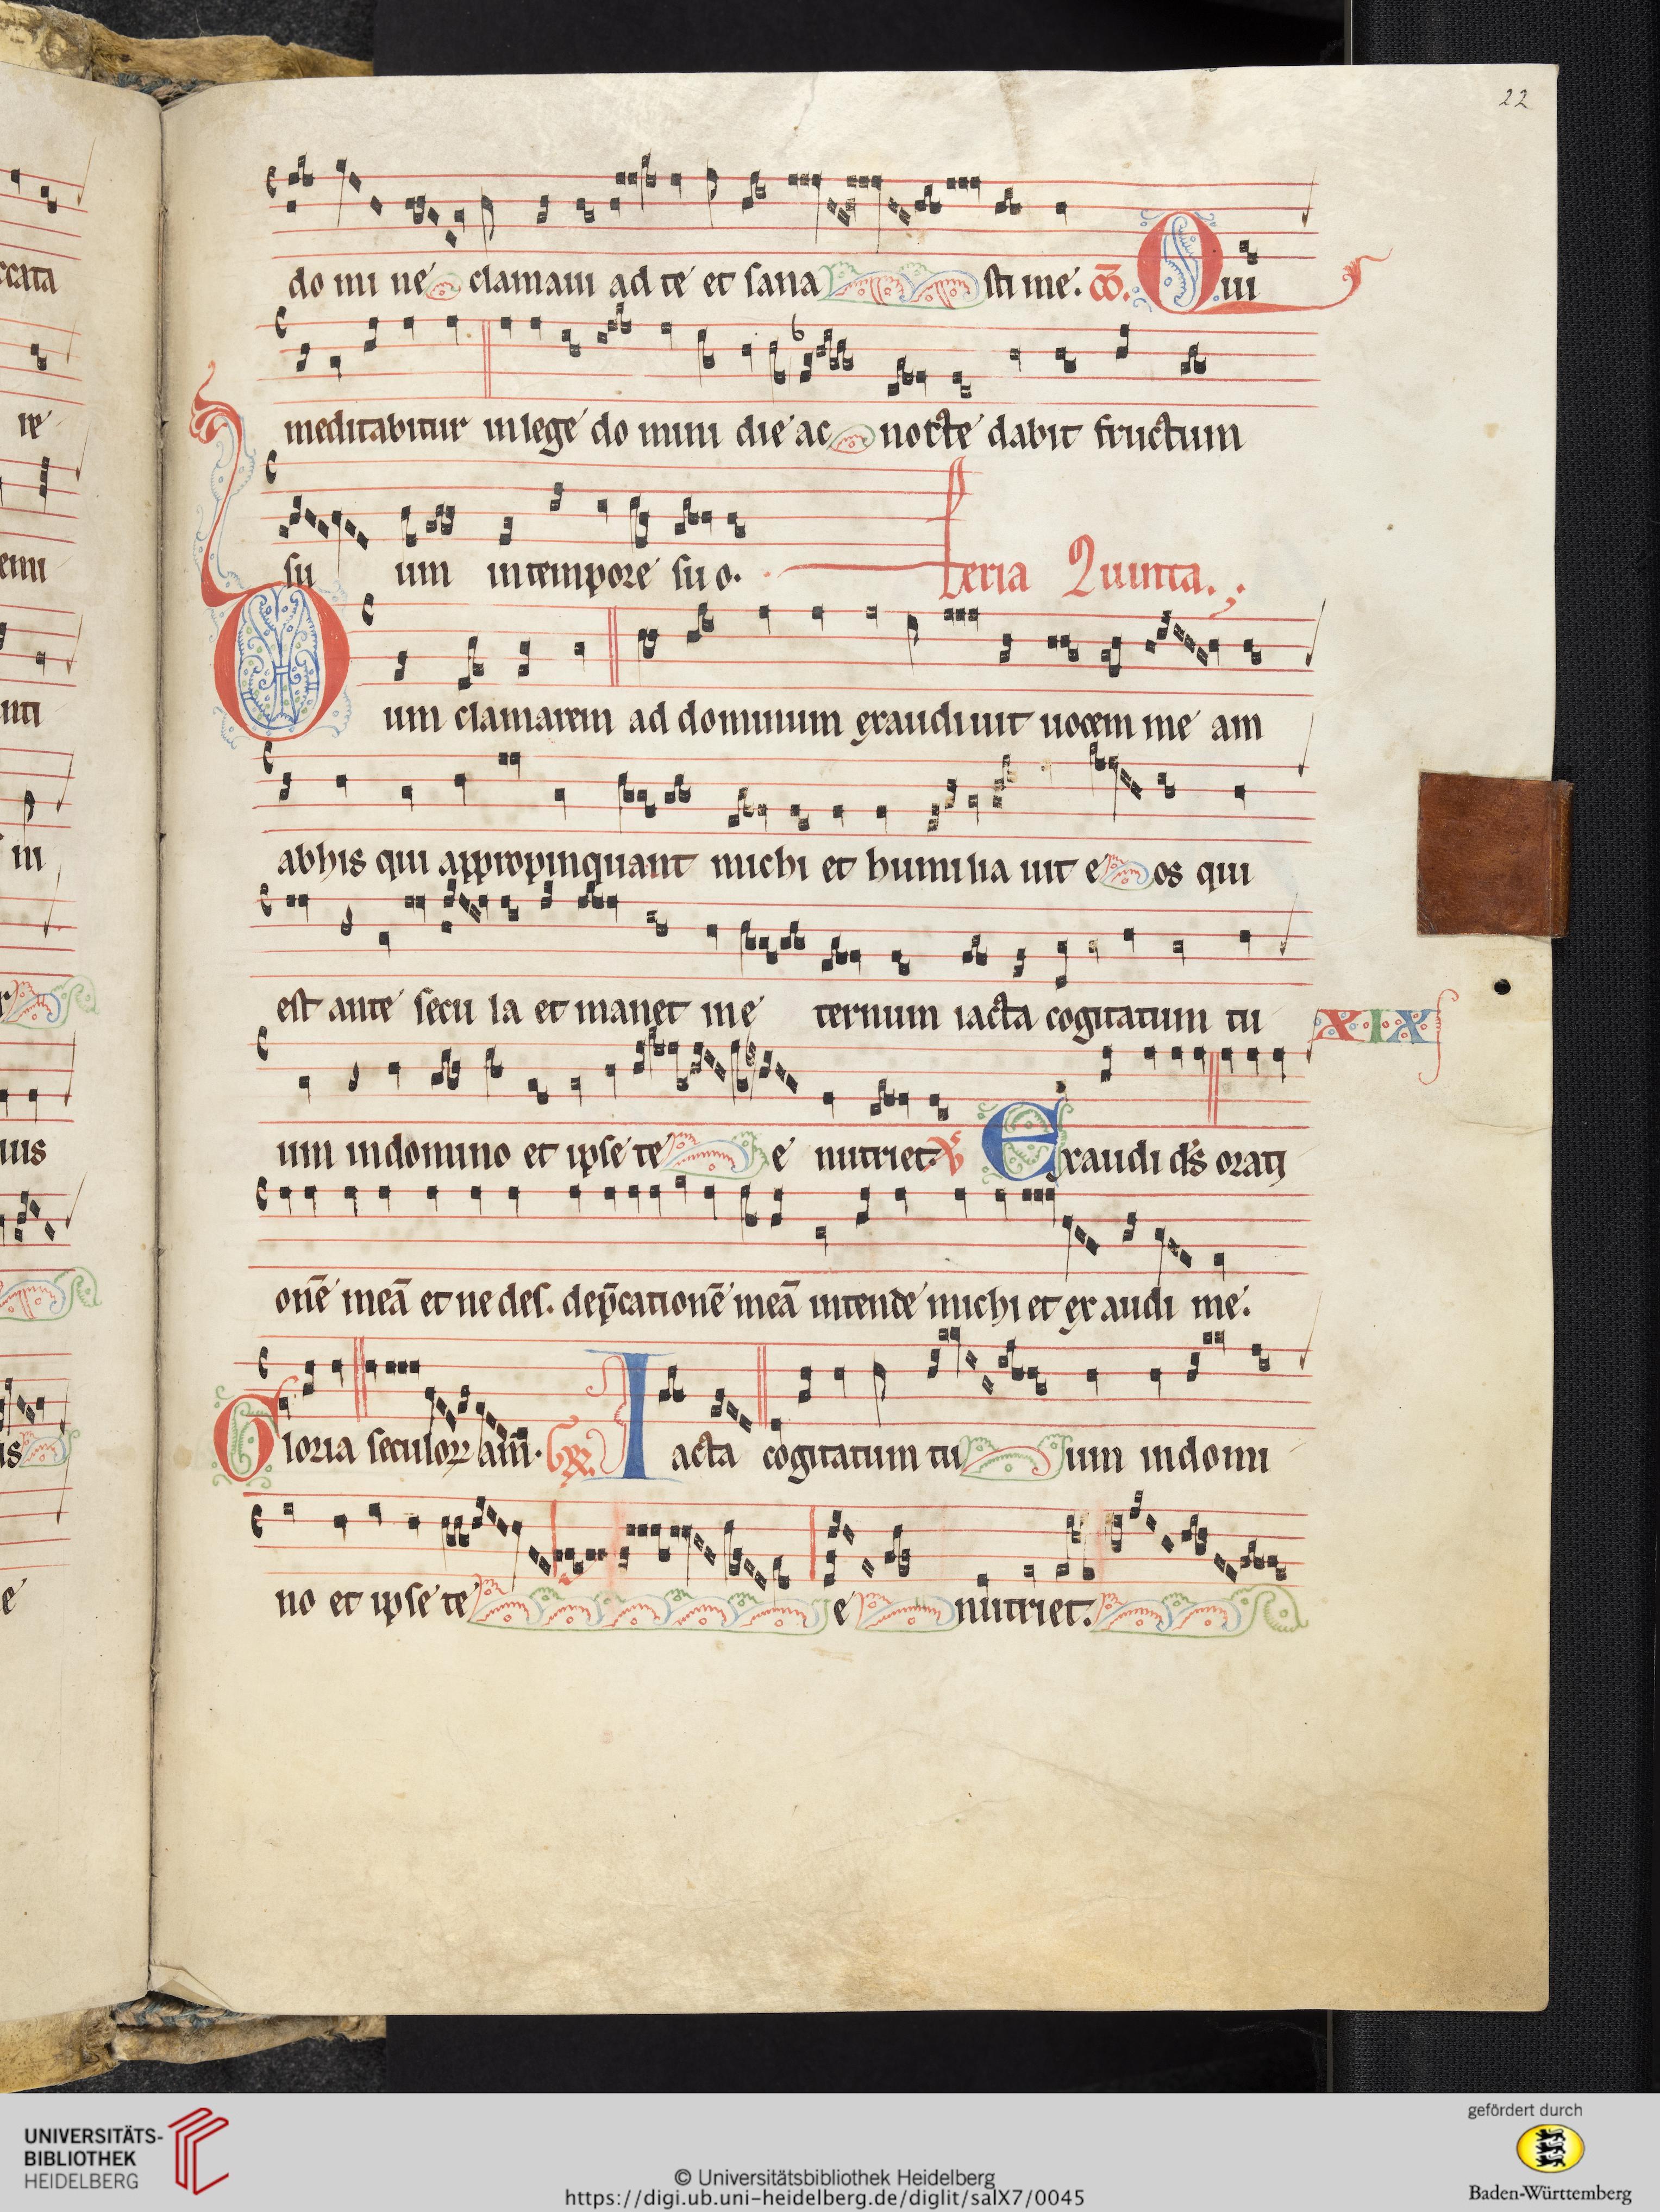 22
do mi ne clamaui ad te et sana sti me. co. Qui
meditabitur in lege do mini die ac nocte dabit fructum
su um in tempore su o. Feria Quinta.
Dum clamarem ad dominum exaudiuit uocem me am
ab his qui appropinquant michi et humi lia uit e os qui
est ante secu la et manet in e ternum iacta cogitatum tu
XIX
um in domino et ipse te e nutriet. Ps Exaudi ds orati
onē meā et ne des. dep̄cationē meā intende michi et ex audi me.
Gloria seculorꝝ am̄. Gꝶ. Iacta cogitatum tu um in domi
no et ipse te e nutriet.
ccata
re
emi
nti
in
ius
is
e
UNIVERSITÄTS-
BIBLIOTHEK
HEIDELBERG
© Universitätsbibliothek Heidelberg
https://digi.ub.uni-heidelberg.de/diglit/salX7/0045
gefördert durch
Baden-Württemberg